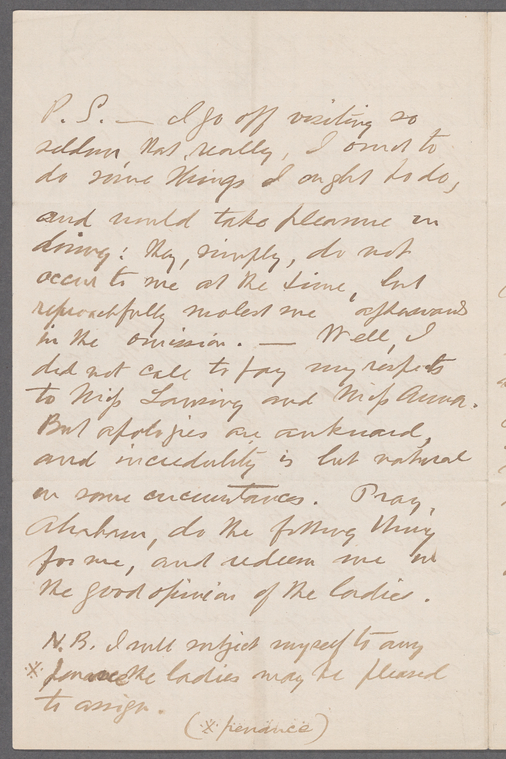 P. S. — I go off visiting so
seldom that, really, I omit to
do some things I ought to do,
and would take pleasure in
doing: they, simply, do not
occur to me at the time, but
reproachfully molest me afterwards
in the omission. — Well, I
did not call to pay my respects
to Miss Lansing and Miss Anna.
But apologies are awkward,
and incredulity is but natural
in some circumstances. Pray,
Abraham, do the fitting thing
for me, and redeem me in
the good opinion of the ladies.
N.B. I will subject myself to any
※ the ladies may be pleased
to assign.
(※ penance)